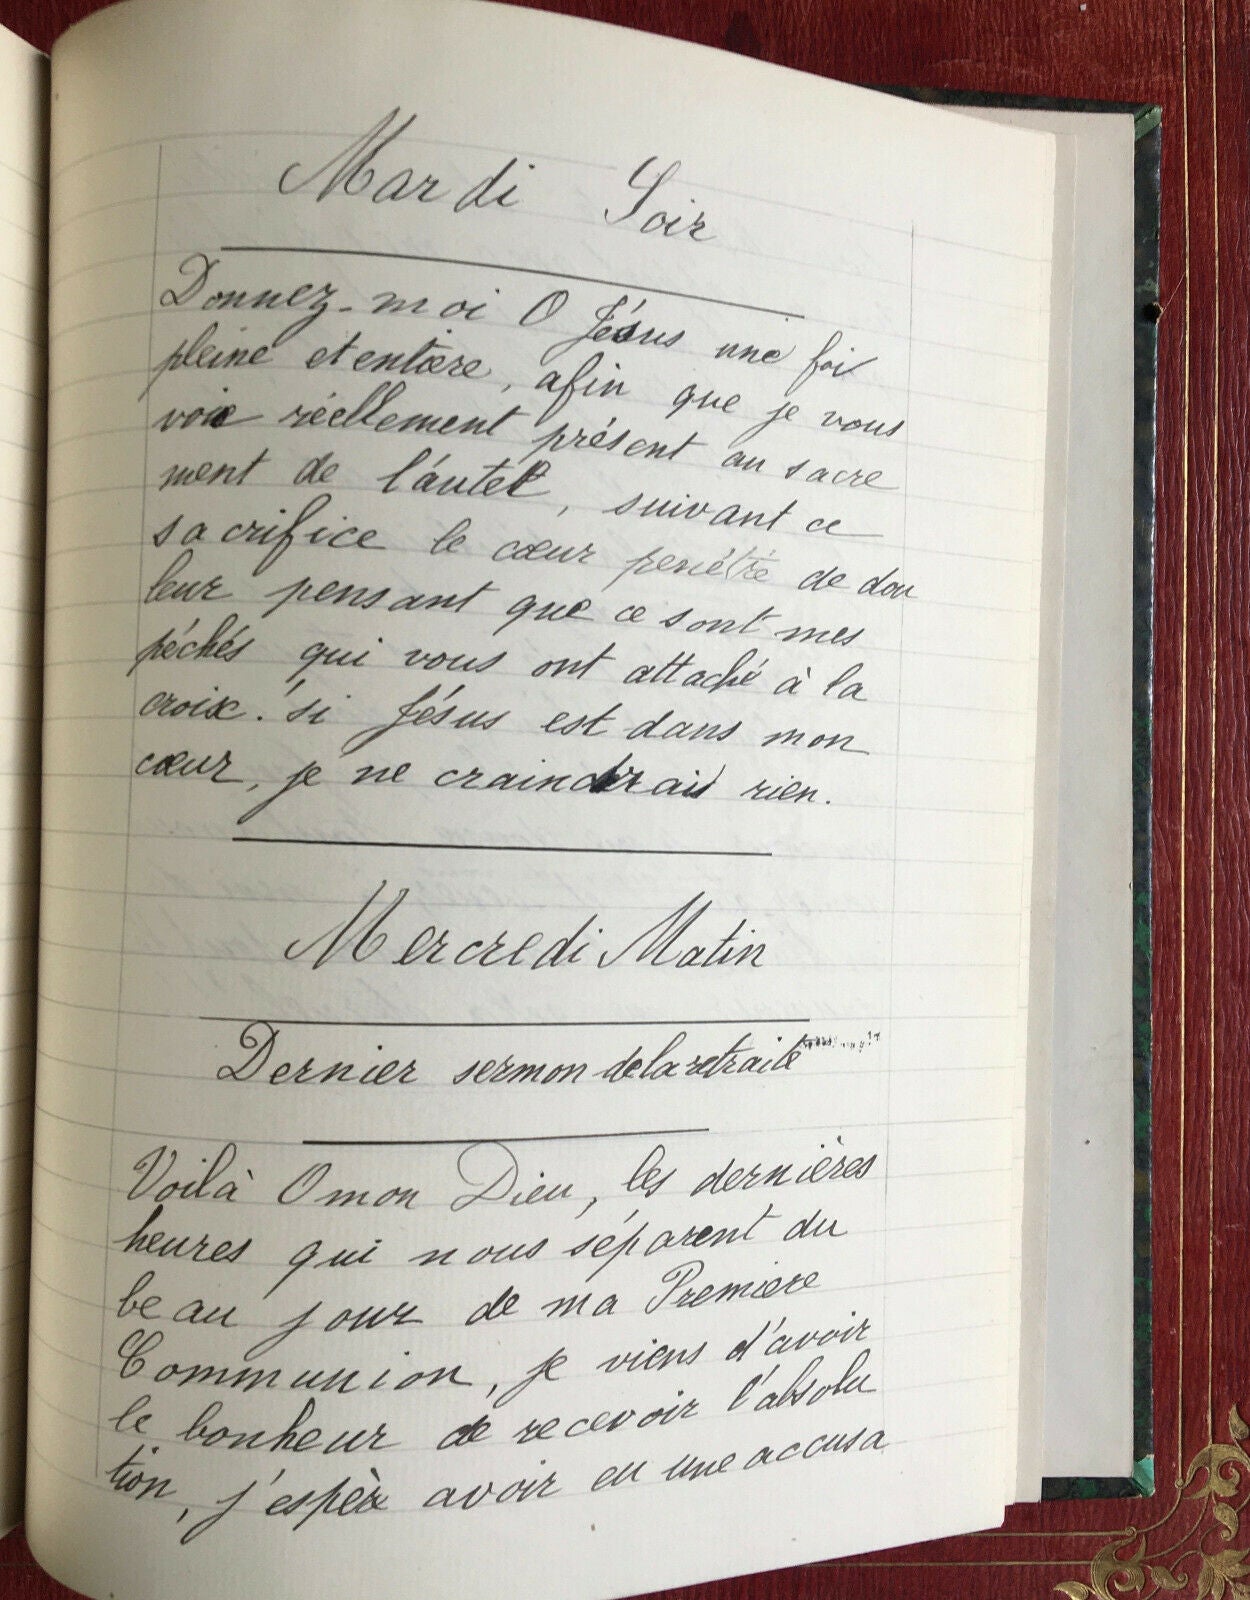 Mardi Soir
Donnez-moi O Jésus une foi
pleine et entière, afin que je vous
voie réellement présent au sacre
ment de l'autel, suivant ce
sacrifice le cœur penétré de dou
leur pensant que ce sont mes
péchés qui vous ont attaché à la
croix. si Jésus est dans mon
cœur, je ne craindrais rien.
Mercredi Matin
Dernier sermon de la retraite
Voilà O mon Dieu, les dernières
heures qui nous séparent du
beau jour de ma Premiere
Communion, je viens d'avoir
le bonheur de recevoir l'absolu
tion, j'espère avoir eu une accusa